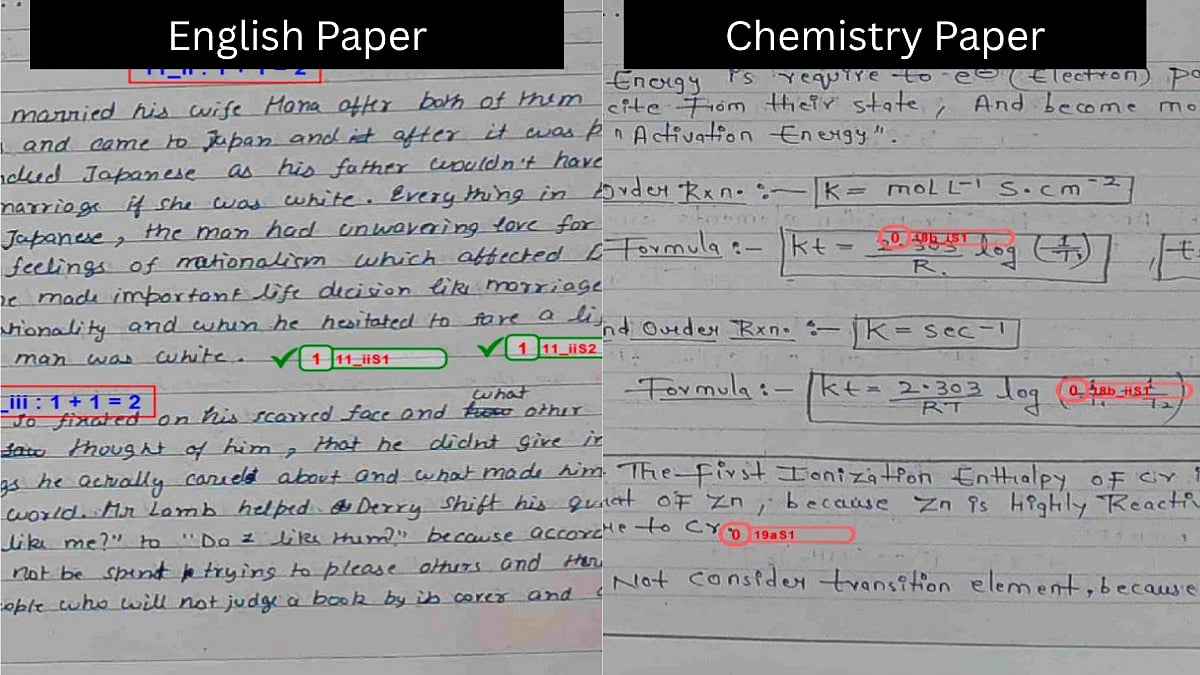 English Paper
married his wife Hana after both of them
and came to Japan and after it was
Japanese as his father wouldn't have
marriage if she was white. Everything in
Japanese, the man had unwavering love for
feelings of nationalism which affected
made important life decision like marriage
and when he hesitated to save a
man was white. 1 11_iiS1 1 11_iiS2
_iii : 1 + 1 = 2
what
So fixated on his scarred face and other
thought of him, that he didnt give
he actually cared about and what made him
world. Mr Lamb helped Derry shift his
like me?" to "Do I like them?" because
not be spent trying to please others and
who will not judge a book by its cover and
Chemistry Paper
Energy is require to e⊖ (Electron)
cite From their state, And become
"Activation Energy".
Order Rxn. :— K = mol L⁻¹ S.cm⁻²
Formula :— Kt = log
R.
0 18b_iS1
nd Order Rxn. :— K = sec⁻¹
Formula :— Kt = 2.303 log
RT
0 18b_iiS1
The First Ionization Enthalpy OF Cr
OF Zn, because Zn is Highly
to Cr. 0 19aS1
Not consider transition element, because